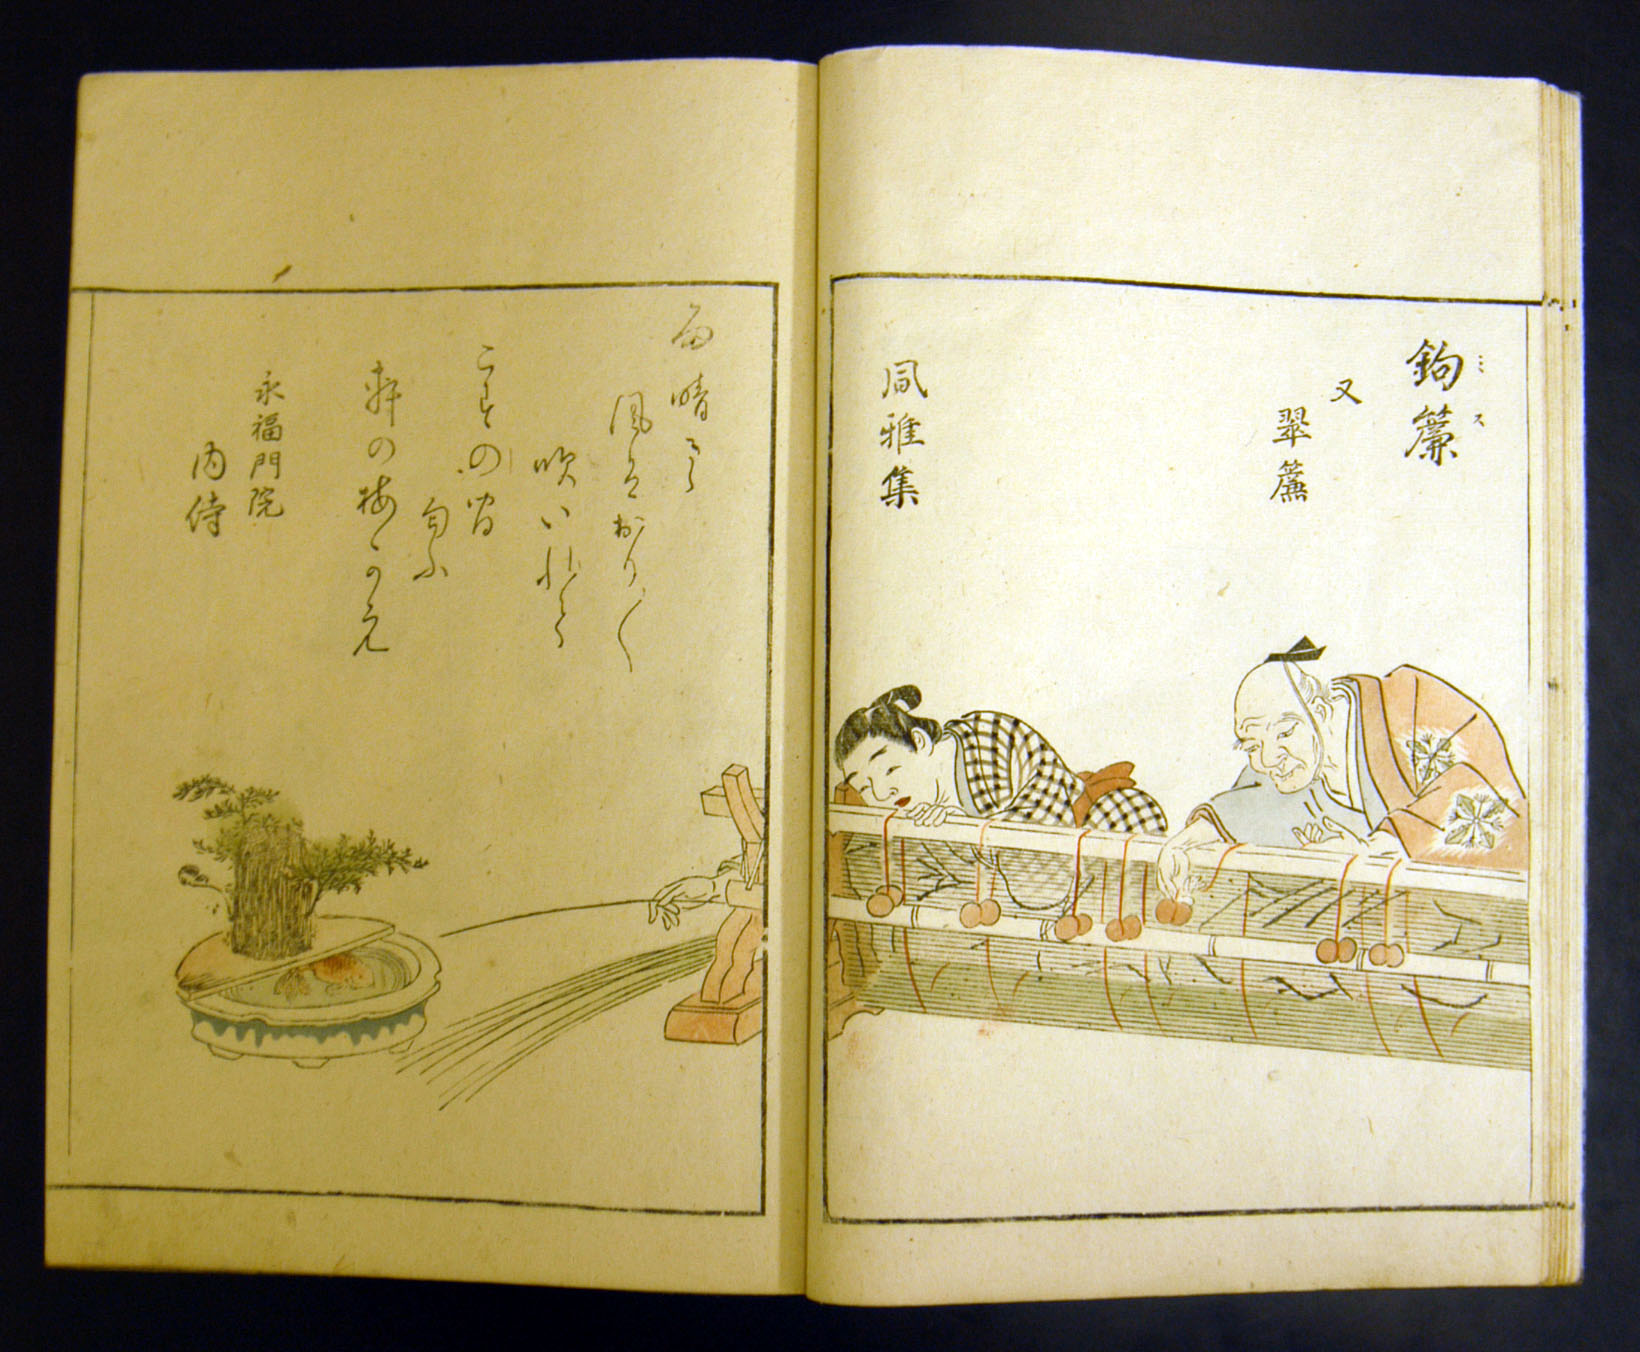 鉤簾
ミス
又
翠簾
風雅集
雨晴るゝ
風はおり〳〵
吹いれて
こすの間
匂ふ
軒の梅かえ
永福門院
内侍